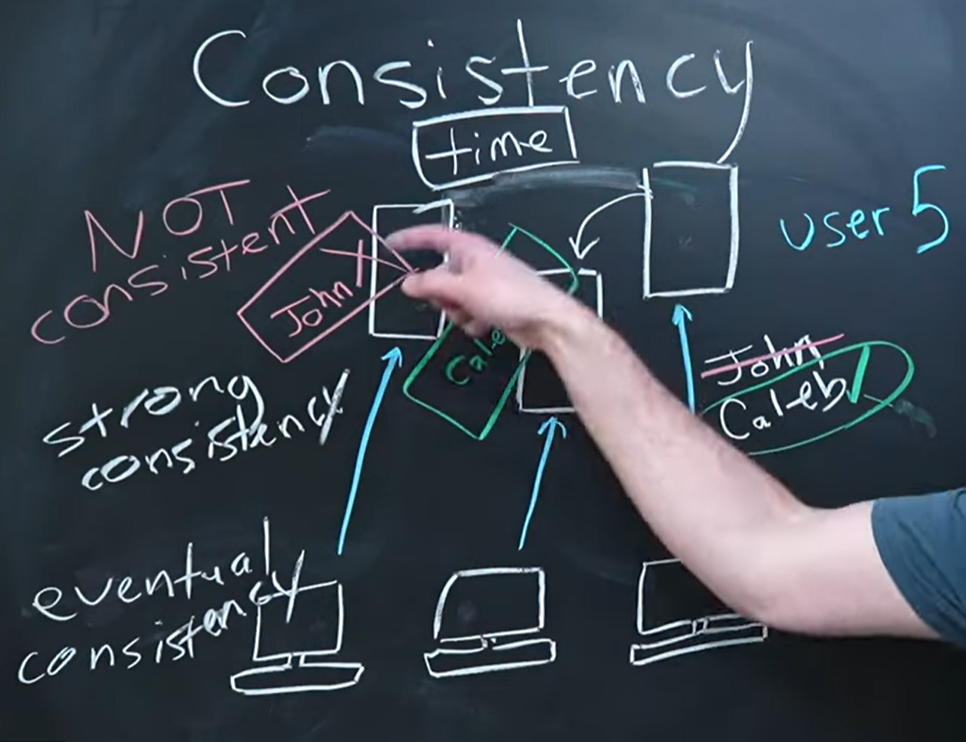 Consistency
time
NOT
consistent
John
user 5
Cale
John
Caleb
strong
consistency
eventual
consistency